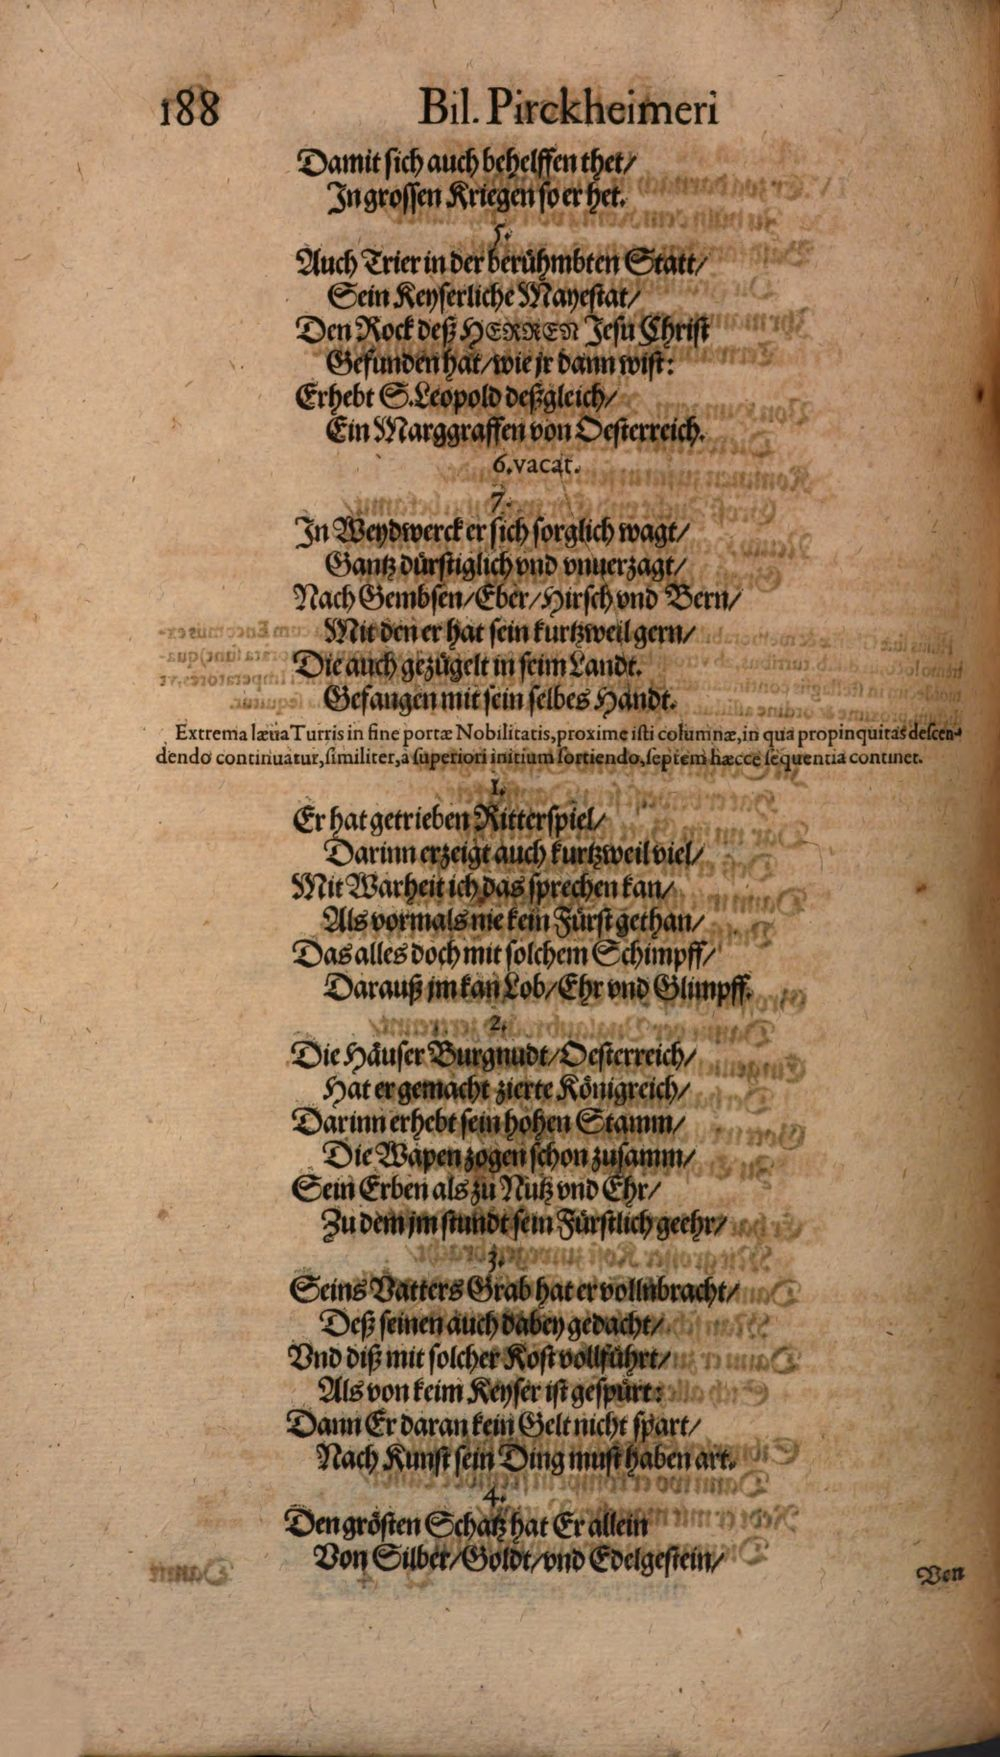 188 Bil. Pirckheimeri
Damit sich auch behelffen thet/
In grossen Kriegen so er het.
5.
Auch Trier in der berühmbten Statt/
Sein Keyserliche Mayestat/
Den Rock deß HERREN Jesu Christ
Gefunden hat/wie jr dann wist:
Erhebt S. Leopold deßgleich/
Ein Marggraffen von Oesterreich.
6. vacat.
7.
In Weydwerck er sich sorglich wagt/
Gantz dürstiglich vnd vnuerzagt/
Nach Gembsen/Eber/Hirsch vnd Bern/
Mit den er hat sein kurtzweil gern/
Die auch gezügelt in seim Landt.
Gefangen mit sein selbes Handt.
Extrema læua Turris in fine portæ Nobilitatis, proxime isti columnæ, in qua propinquitas descen-
dendo continuatur, similiter, a superiori initium sortiendo, septem hæcce sequentia continet.
1.
Er hat getrieben Ritterspiel/
Darinn erzeigt auch kurtzweil viel/
Mit Warheit ich das sprechen kan/
Als vormals nie kein Fürst gethan/
Das alles doch mit solchem Schimpff/
Darauß jm kan Lob/Ehr vnd Glimpff.
2.
Die Häuser Burgnudt/Oesterreich/
Hat er gemacht zierte Königreich/
Darinn erhebt sein hohen Stamm/
Die Wapen zogen schon zusamm/
Sein Erben als zu Nutz vnd Ehr/
Zu dem jm stundt sein Fürstlich geehr/
3.
Seins Vatters Grab hat er vollnbracht/
Deß seinen auch dabey gedacht/
Vnd diß mit solcher Kost vollführt/
Als von keim Keyser ist gespürt:
Dann Er daran kein Gelt nicht spart/
Nach Kunst sein Ding must haben art.
4.
Den grösten Schatz hat Er allein
Von Silber/Goldt/vnd Edelgestein/
Von